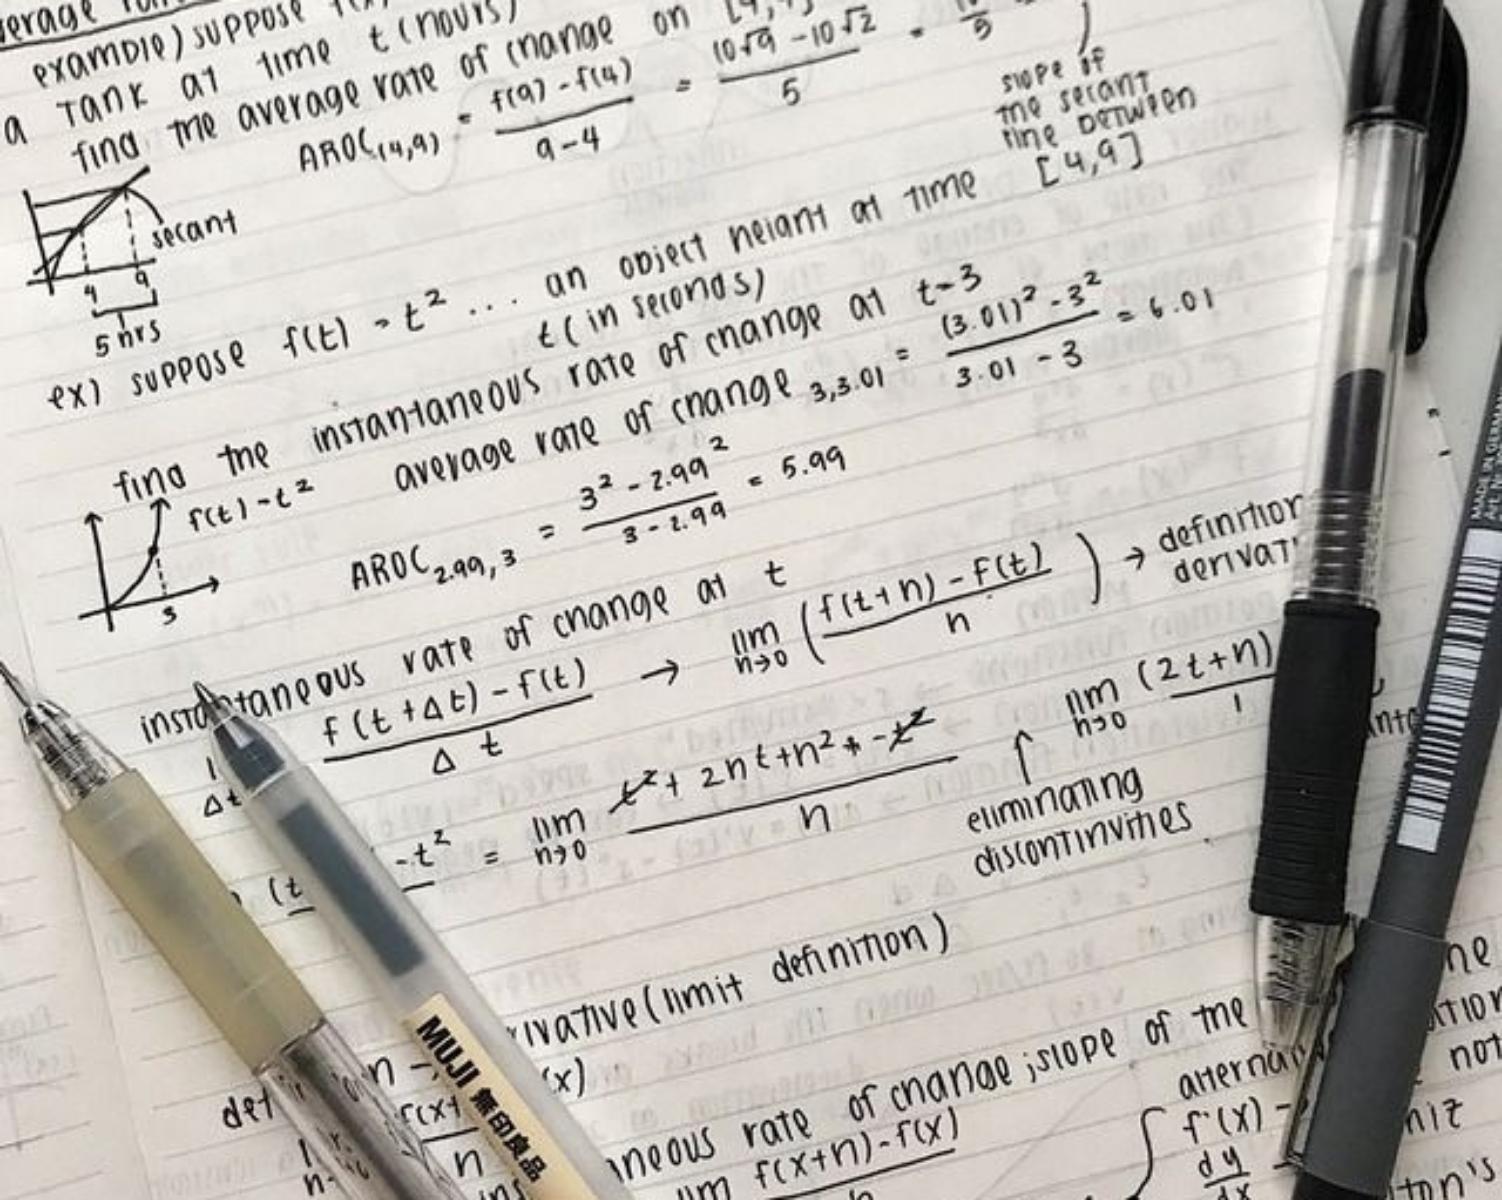 example) suppose
a tank at time t (hours)
find the average rate of change on
AROC(4,9) = f(9) - f(4) / 9-4 = 10√9 - 10√2 / 5 = /5
slope of
the secant
line between
[4,9]
secant
4 9
5 hrs
ex) suppose f(t) = t² ... an object height at time
t (in seconds)
find the instantaneous rate of change at t=3
average rate of change 3,3.01 = (3.01)² - 3² / 3.01 - 3 = 6.01
f(t) = t²
3
AROC 2.99, 3 = 3² - 2.99² / 3 - 2.99 = 5.99
instantaneous rate of change at t
f(t + Δt) - f(t) / Δt → lim h→0 (f(t+h) - f(t) / h) → definition
derivat
Δt
(t - t² = lim h→0 t² + 2ht + h² + -t² / h
lim h→0 (2t+h) / 1
eliminating
discontinuities
rivative (limit definition)
(x)
neous rate of change; slope of the
f(x+h) - f(x)
h
f'(x)
dy
dx
not
niz
ton's
MUJI 無印良品
MADE IN GERMANY